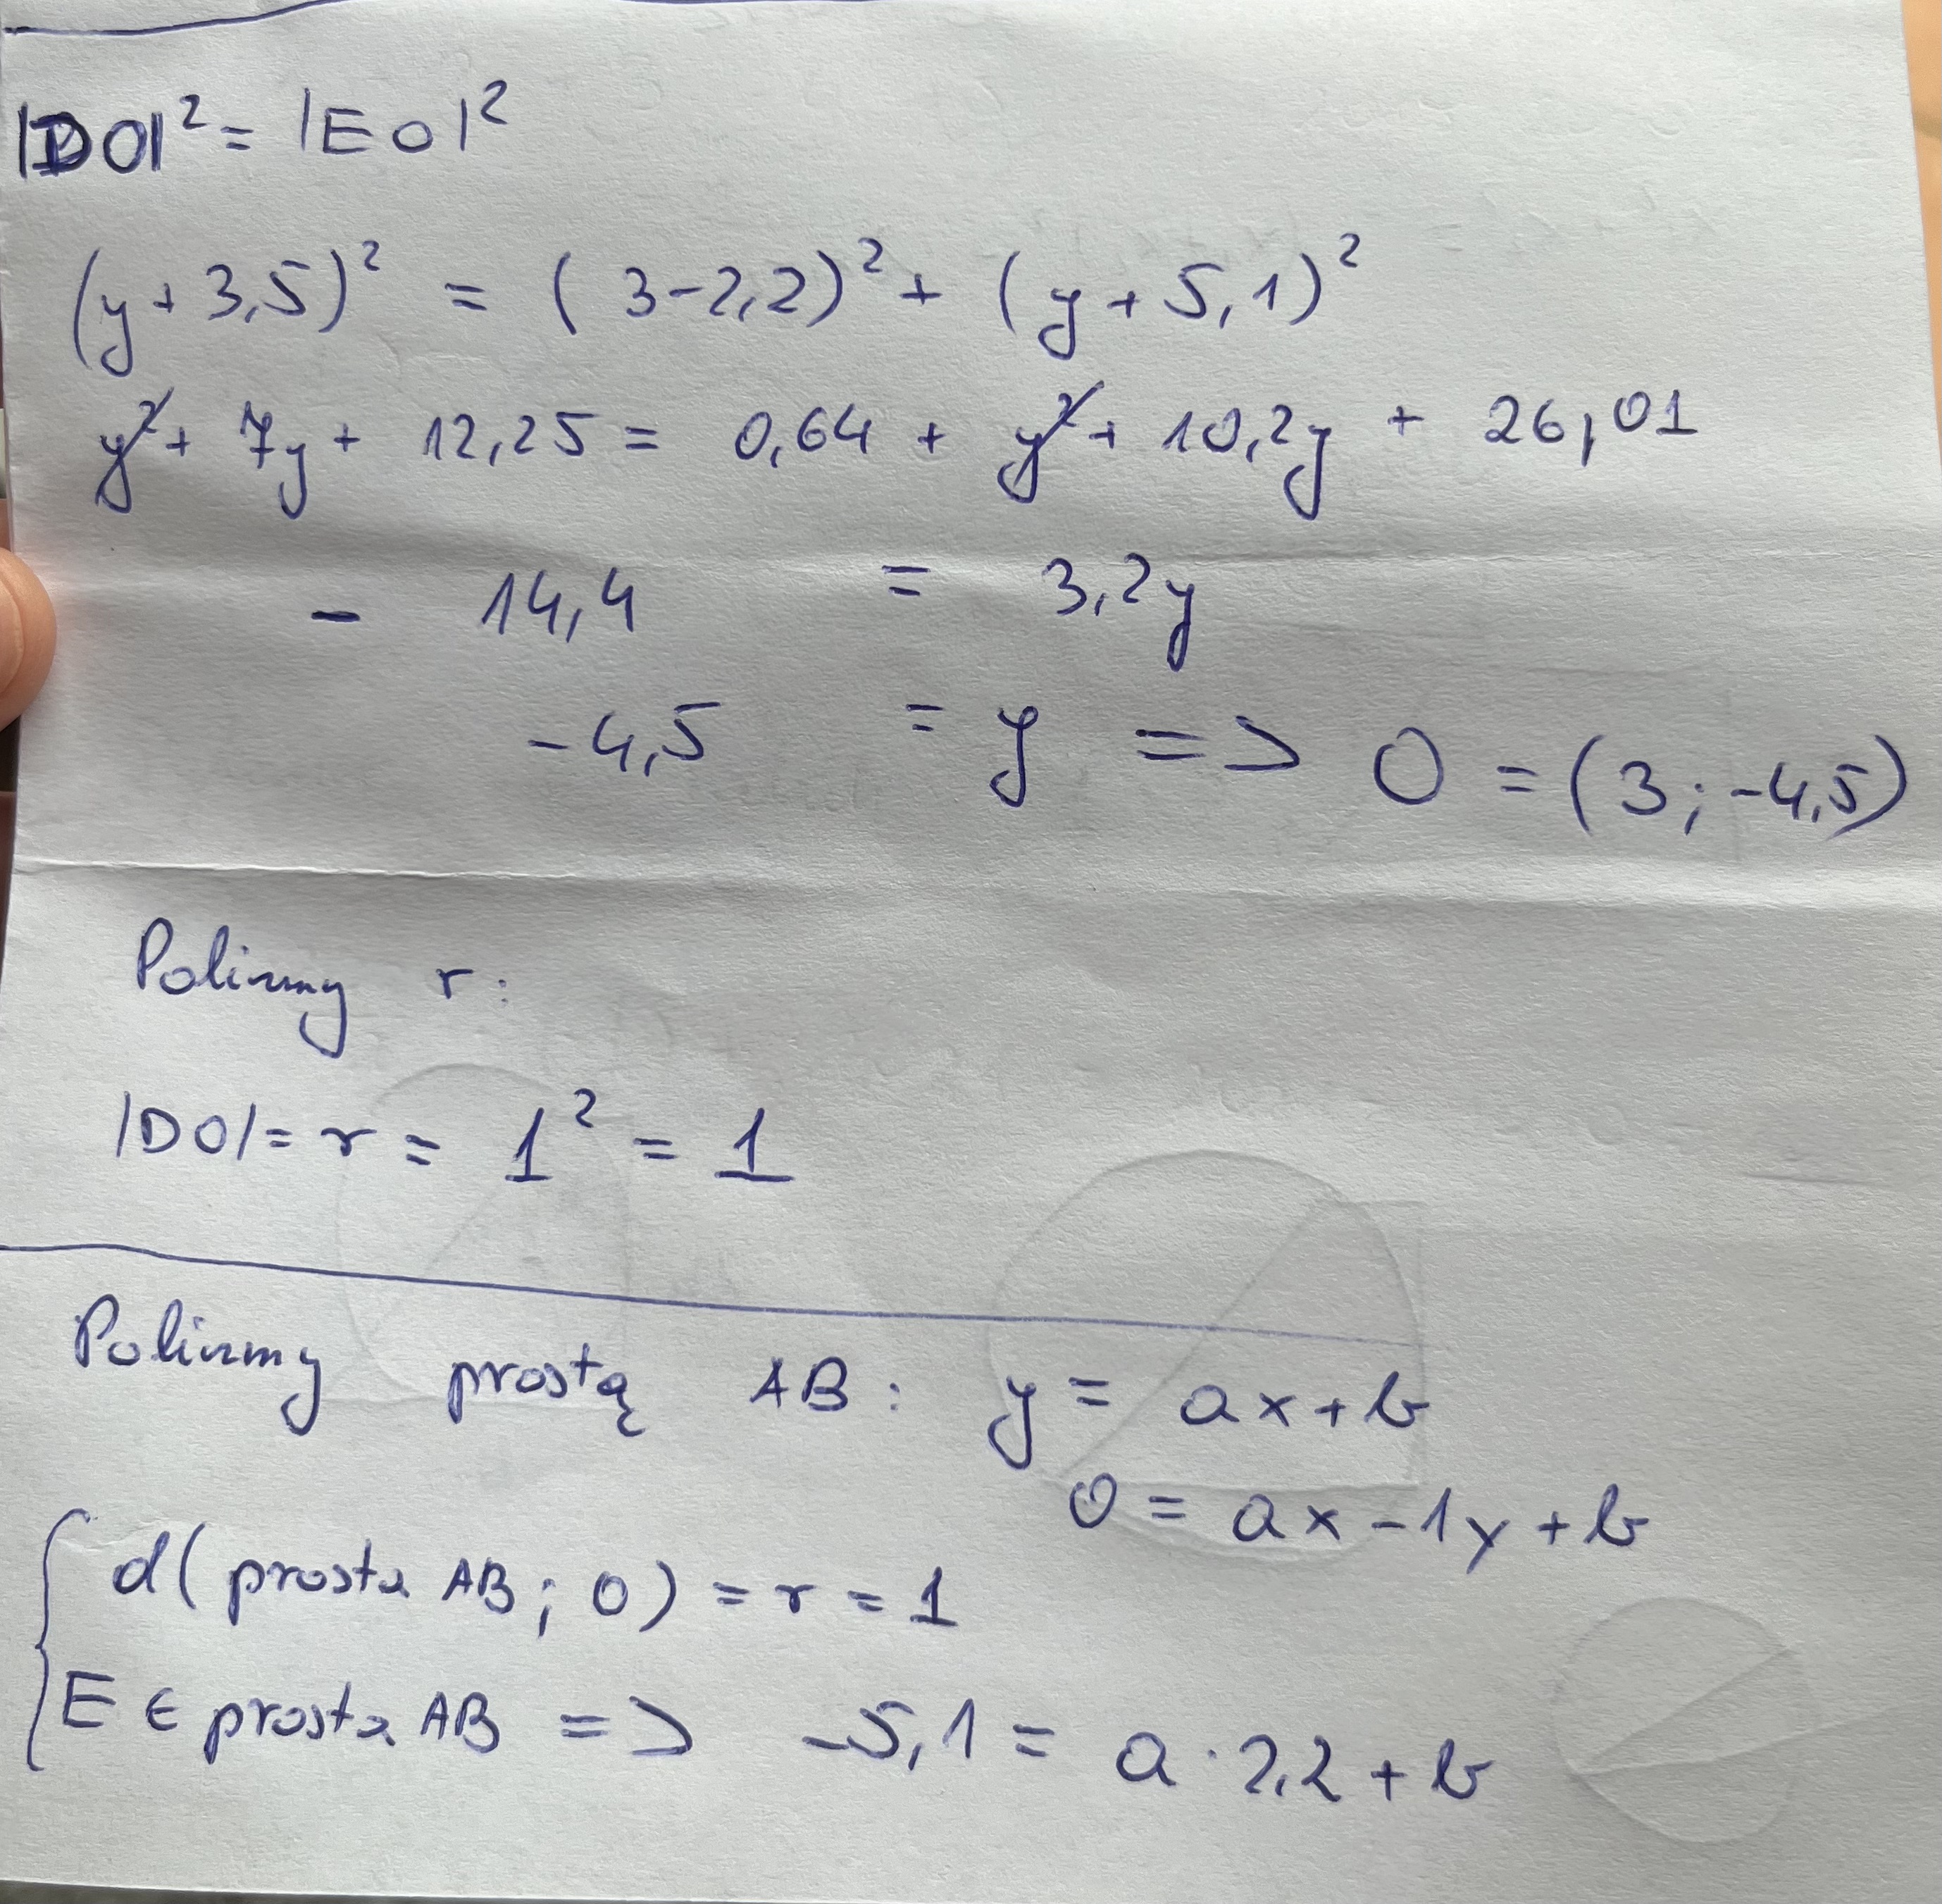 |DO|² = |EO|²
(y + 3,5)² = (3 - 2,2)² + (y + 5,1)²
y² + 7y + 12,25 = 0,64 + y² + 10,2y + 26,01
- 14,4 = 3,2y
-4,5 = y => O = (3; -4,5)
Policzmy r:
|DO| = r = 1² = 1
Policzmy prostą AB: y = ax + b
0 = ax - 1y + b
d(prosta AB; O) = r = 1
E ∈ prosta AB => -5,1 = a · 2,2 + b